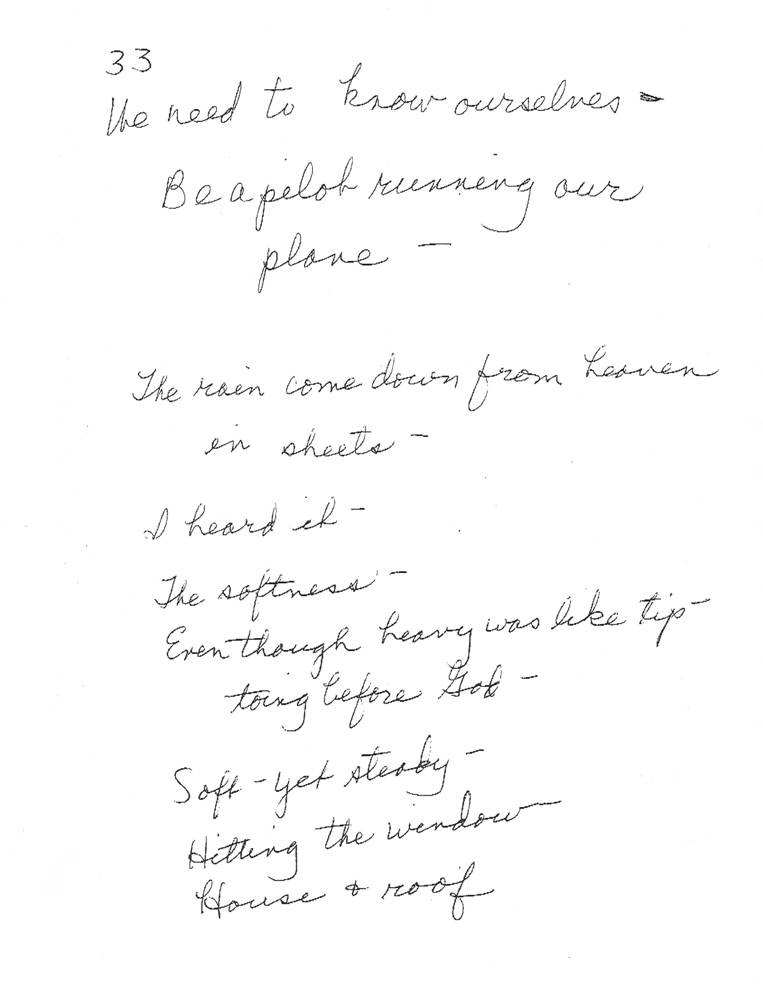 33
We need to know ourselves -
Be a pilot running our
plane -
The rain come down from heaven
in sheets -
I heard it -
The softness -
Even though heavy was like tip-
toing before God -
Soft - yet steady -
Hitting the window
House & roof